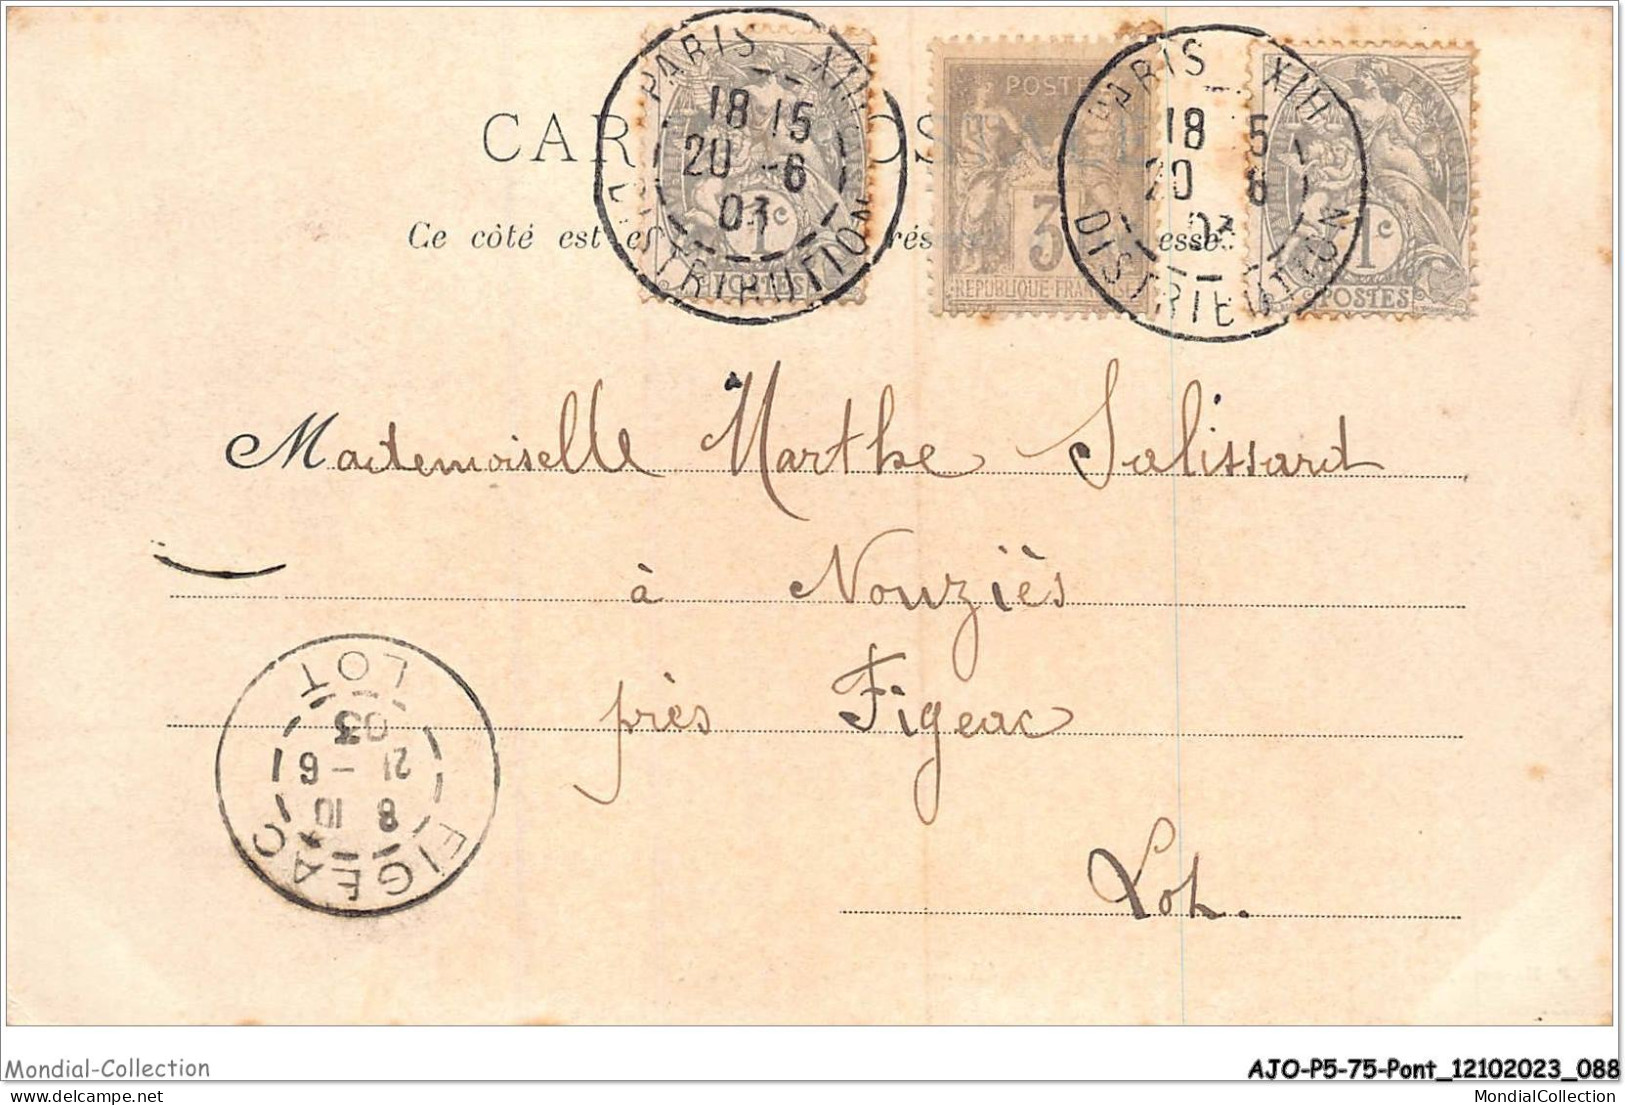 PARIS XIII
18 15
20 -6
03
DISTRIBUTION
1c
POSTES
POSTE
3
REPUBLIQUE FRAN
PARIS XIII
18 5
20 6
03
DISTRIBUTION
1c
POSTES
CAR OS
Ce côté est e rés esse.
Mademoiselle Marthe Salissard
à Nouziès
près Figeac
Lot.
FIGEAC
8 10
21 - 6
03
LOT
Mondial-Collection
AJO-P5-75-Pont_12102023_088
MondialCollection